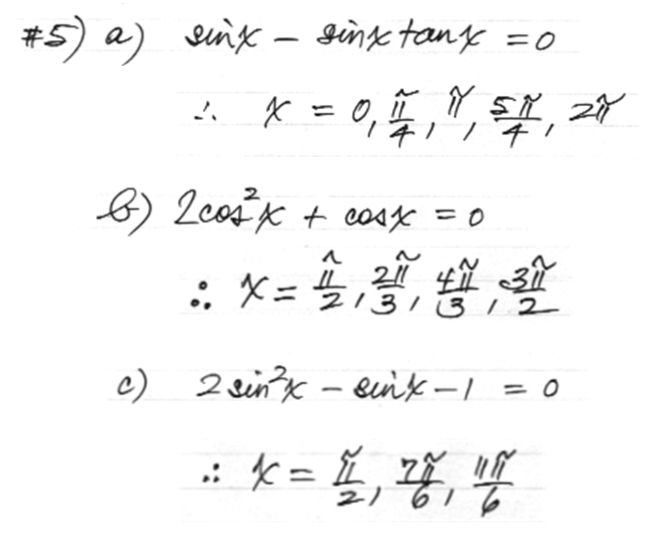 #5) a) sinx - sinx tanx = 0
∴ x = 0, π/4, π, 5π/4, 2π
b) 2cos²x + cosx = 0
∴ x = π/2, 2π/3, 4π/3, 3π/2
c) 2sin²x - sinx - 1 = 0
∴ x = π/2, 7π/6, 11π/6